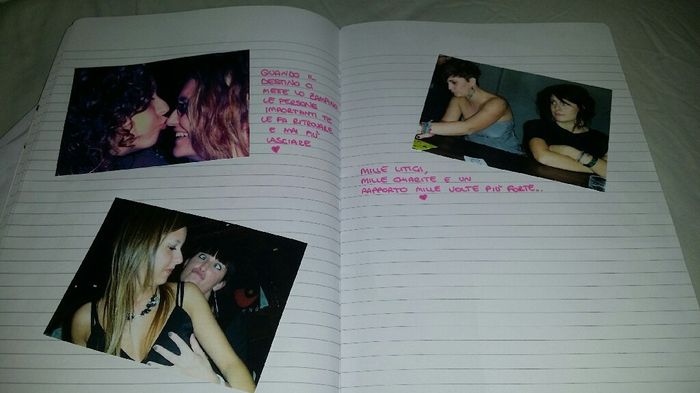 QUANDO IL
DESTINO CI
METE LO ZAMPINO
LE PERSONE
IMPORTANTI TE
LE FA RITROVARE
E MAI PIÙ
LASCIARE
MILLE LITIGI,
MILLE CHIARITE E UN
RAPPORTO MILLE VOLTE PIÙ FORTE..